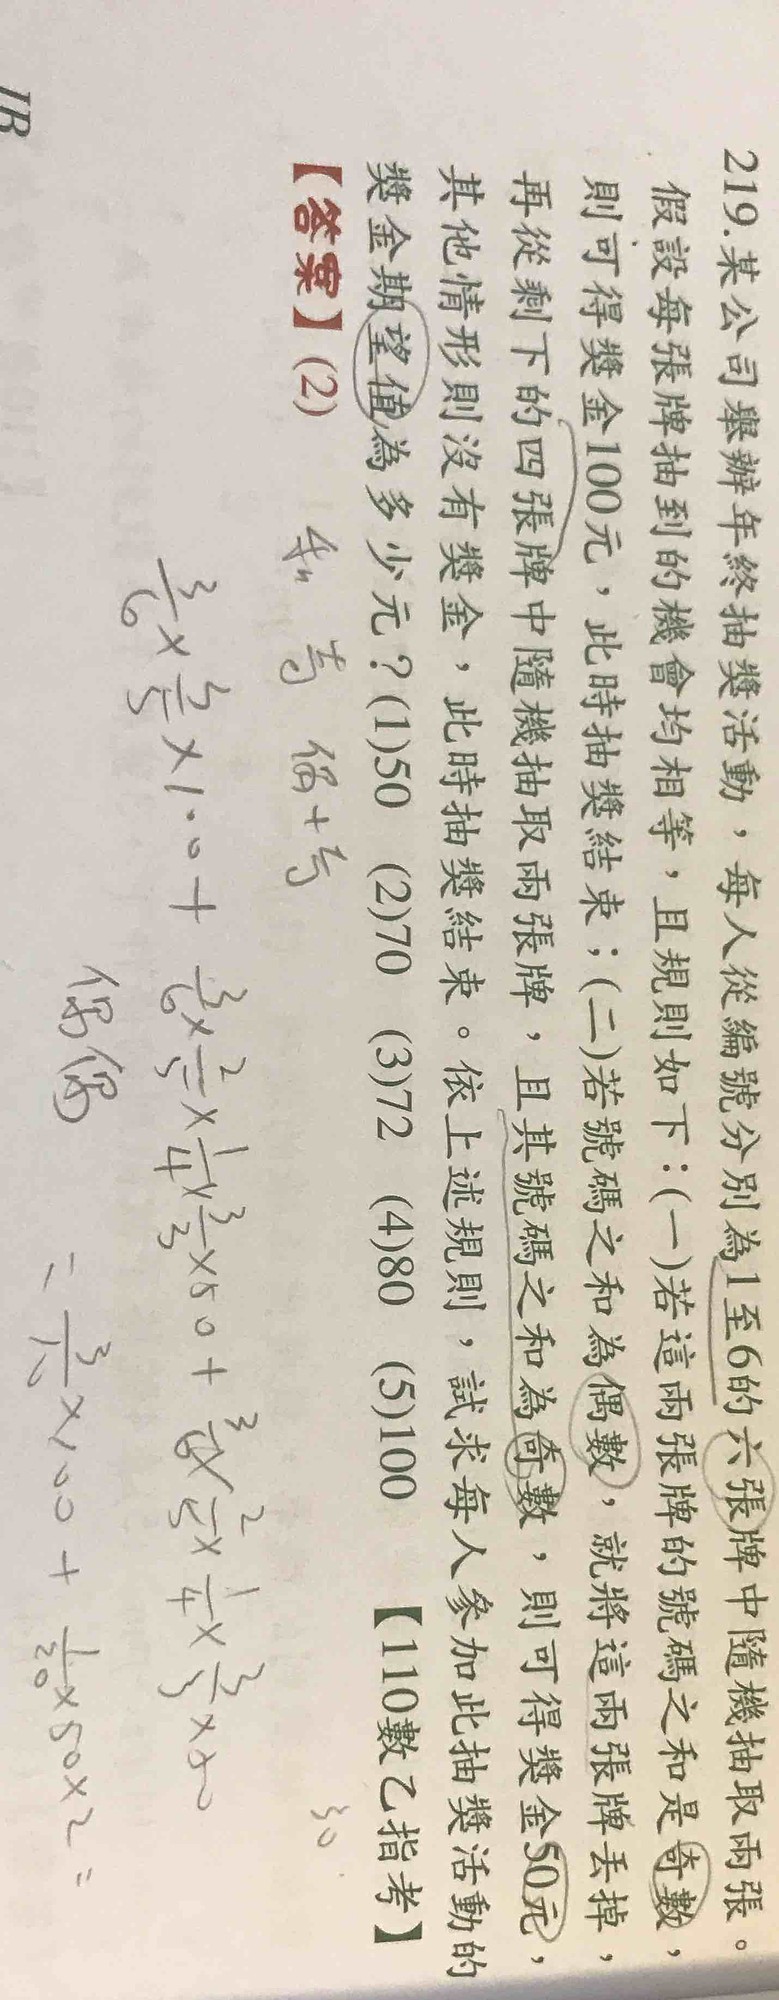 219.某公司舉辦年終抽獎活動，每人從編號分別為1至6的六張牌中隨機抽取兩張。
假設每張牌抽到的機會均相等，且規則如下：(一)若這兩張牌的號碼之和是奇數，
則可得獎金100元，此時抽獎結束；(二)若號碼之和為偶數，就將這兩張牌丟掉，
再從剩下的四張牌中隨機抽取兩張牌，且其號碼之和為奇數，則可得獎金50元，
其他情形則沒有獎金，此時抽獎結束。依上述規則，試求每人參加此抽獎活動的
獎金期望值為多少元？(1)50 (2)70 (3)72 (4)80 (5)100 【110數乙指考】
【答案】(2)
和 奇 偶+奇
30
3/6 × 3/5 × 100 + 3/6 × 2/5 × 1/4 × 3/3 × 50 + 3/6 × 2/5 × 1/4 × 3/3 × 50
偶偶
= 3/10 × 100 + 1/20 × 50 × 2 =
IB